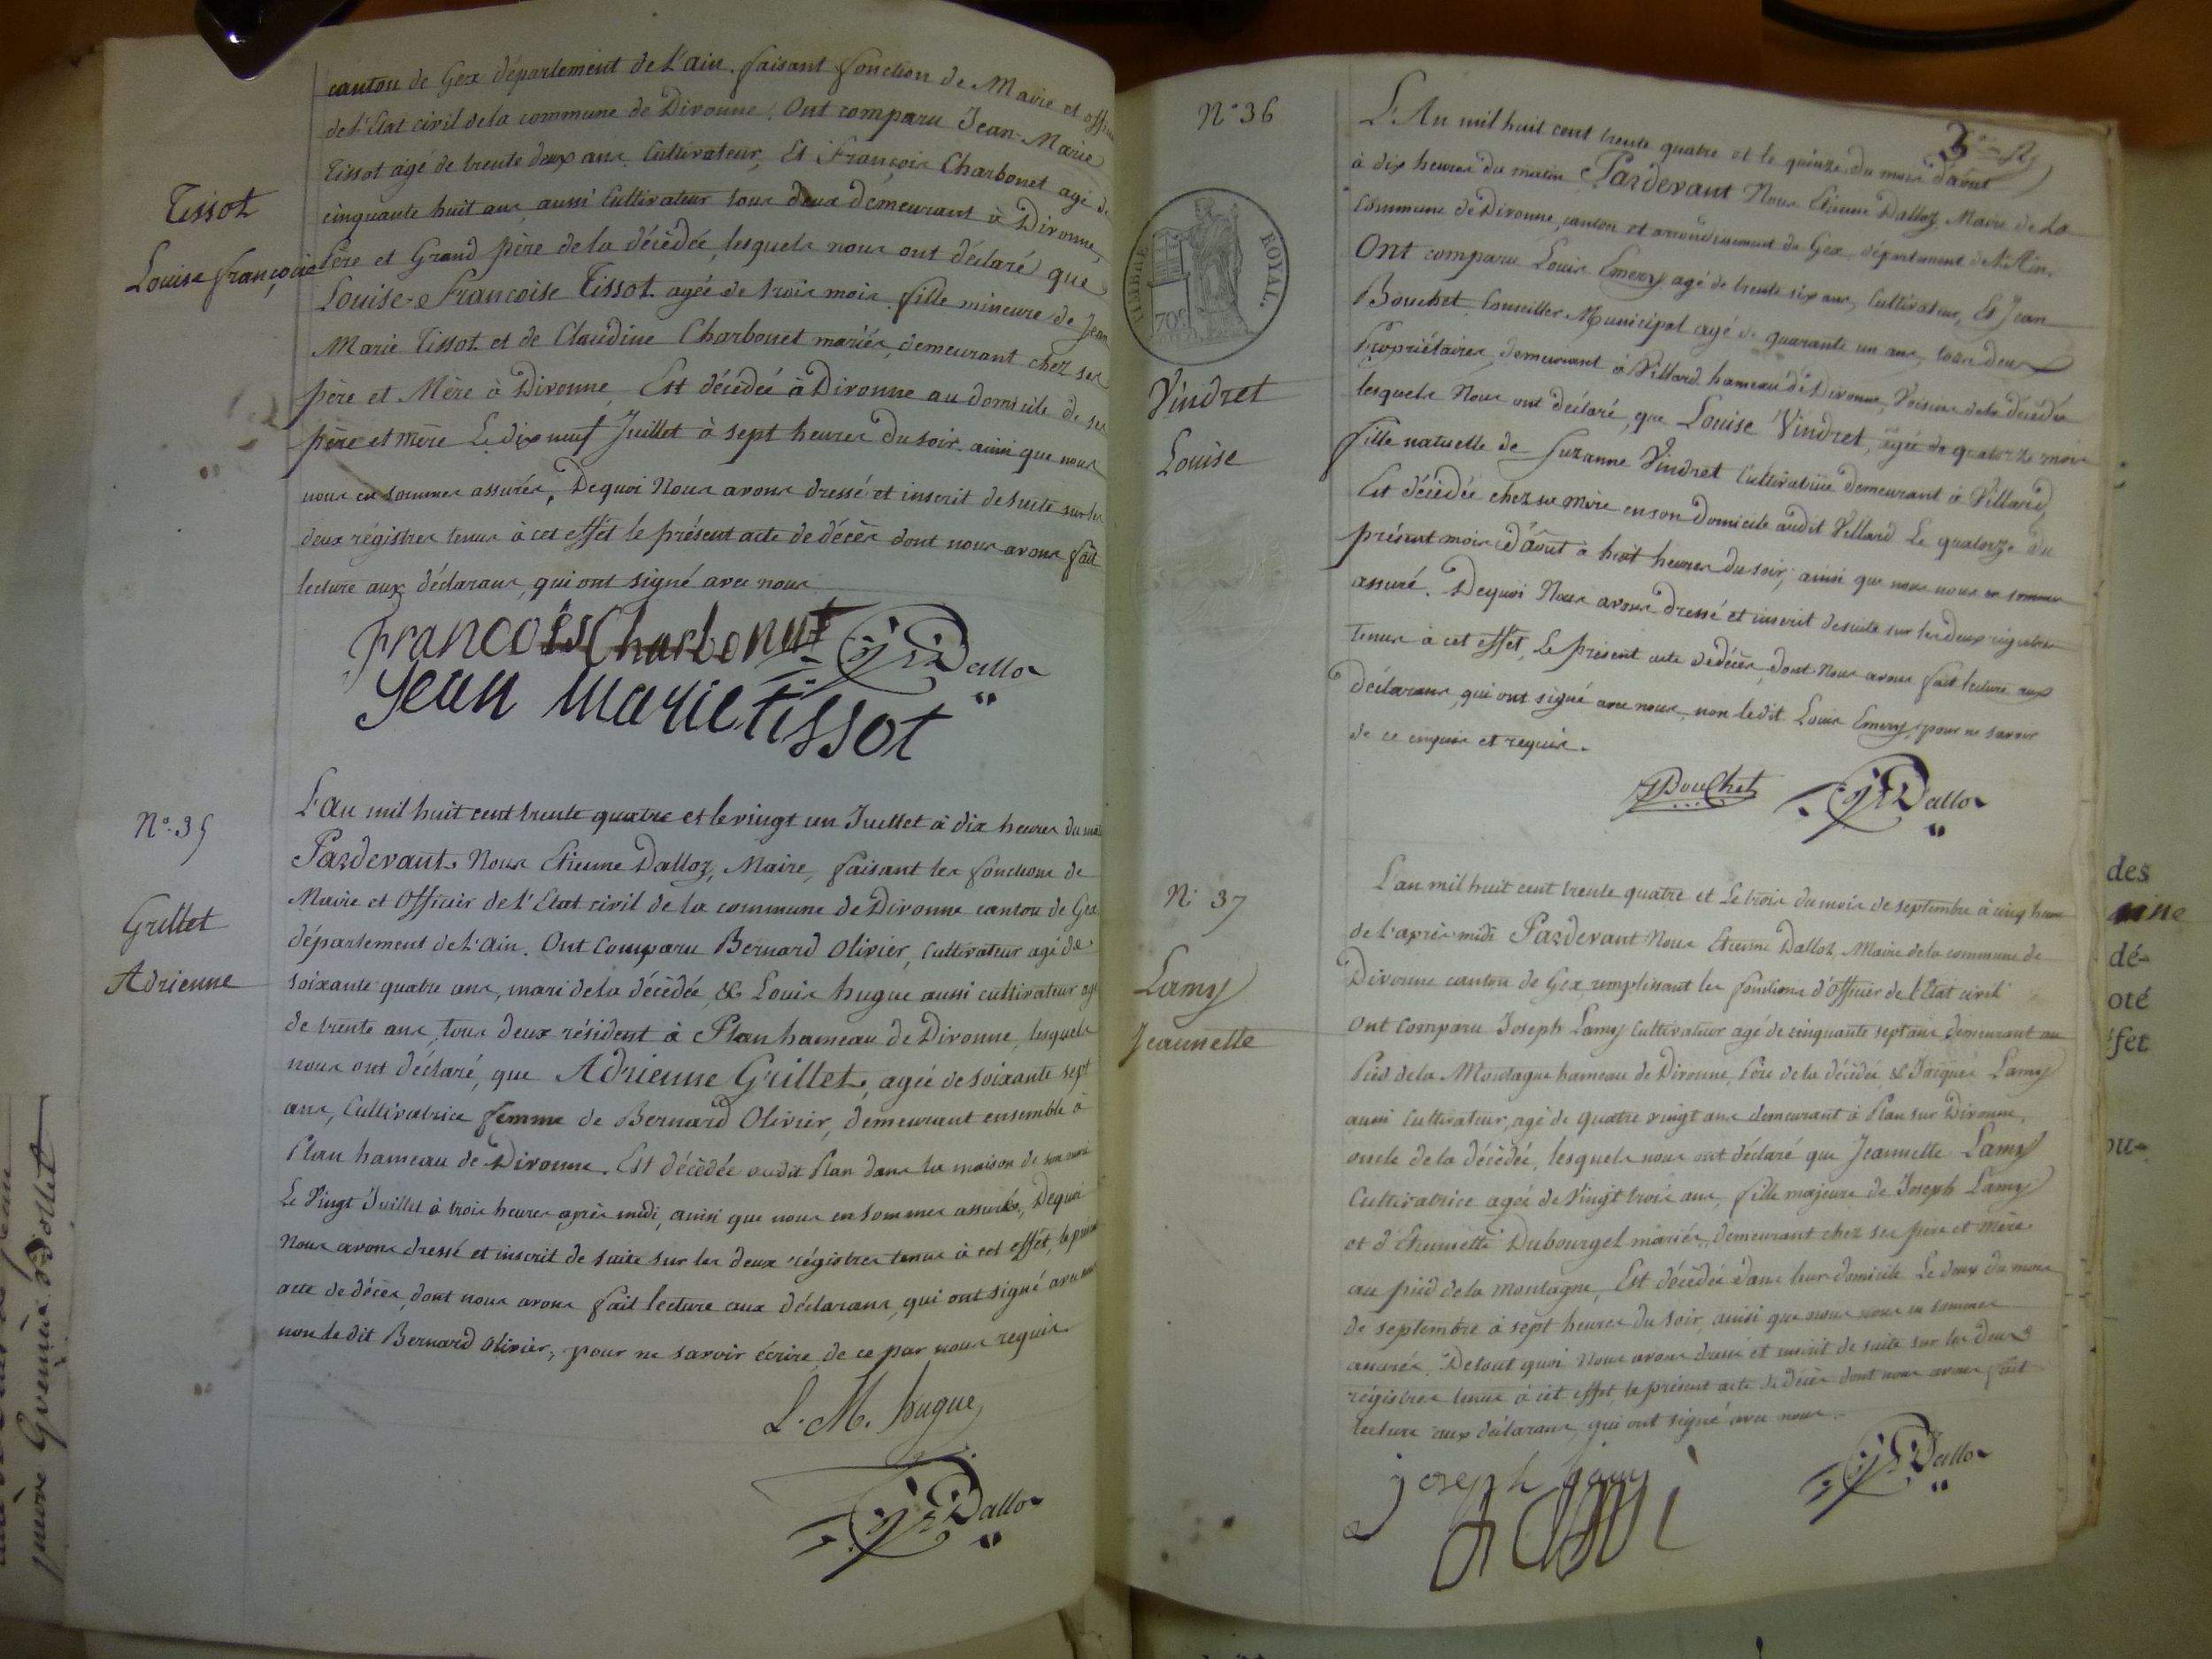 canton de Gex département de l'ain. faisant fonction de Maire et
de l'Etat civil de la commune de Divonne, Ont comparu Jean-Marie
Tissot agé de trente deux ans Cultivateur, Et François Charbonet agé de
cinquante huit ans aussi Cultivateur tous deux demeurant à Divonne,
Tissot
Louise françoise
Père et Grand père de la décèdée, lesquels nous ont déclaré que
Louise-Francoise Tissot agée de trois mois fille mineure de Jean
Marie Tissot et de Claudine Charbonet mariés, demeurant chez ses
père et Mère à Divonne Est décèdée à Divonne au domicile de ses
père et mère Le dix neuf Juillet à sept heures du soir ainsi que nous
nous en sommes assurés, Dequoi Nous avons dressé et inscrit desuite sur les
deux régistres tenus à cet effet le présent acte de décès dont nous avons fait
lecture aux déclarans, qui ont signé avec nous
Francois Charbonet
Dalloz
Jean marie tissot
N° 35
Grillet
Adrienne
L'an mil huit cent trente quatre et le vingt un Juillet à dix heures du
Pardevant Nous Etienne Dalloz, Maire, faisant les fonctions de
Maire et Officier de l'Etat civil de la commune de Divonne canton de Gex
département de l'Ain. Ont Comparu Bernard Olivier, Cultivateur agé de
soixante quatre ans, mari de la décèdée, & Louis hugue aussi cultivateur agé
de trente ans, tous deux résident à Plan hameau de Divonne, lesquels
nous ont déclaré, que Adrienne Grillet, agée de soixante sept
ans, Cultivatrice femme de Bernard Olivier, demeurant ensemble à
Plan hameau de Divonne. Est décèdée audit Plan dans la maison de son mari
Le Vingt Juillet à trois heures après midi, ainsi que nous en sommes assurés, Dequoi
Nous avons dressé et inscrit de suite sur les deux régistres tenus à cet effet, le
acte de décès, dont nous avons fait lecture aux déclarans, qui ont signé avec nous
non le dit Bernard Olivier, pour ne savoir écrire de ce par nous requis
L. M. hugue
Dalloz
N° 36
L'An mil huit cent trente quatre et le quinze du mois d'août
à dix heures du matin Pardevant Nous Etienne Dalloz Maire de la
Commune de Divonne, canton et arrondissement de Gex, département de l'Ain.
Ont comparu Louis Emery agé de trente six ans, Cultivateur, Et Jean
Bouchet Conseiller Municipal agé de quarante un ans, tous deux
TIMBRE ROYAL.
70c
Vindret
Louise
Propriétaires, demeurant à Villard hameau de Divonne, Voisins de la décèdée
lesquels Nous ont déclaré, que Louise Vindret, agée de quatorze mois
fille natuelle de Suzanne Vindret Cultivatrice demeurant à Villard,
Est décèdée chez sa mère en son Domicile audit Villard Le quatorze du
présent mois d'août à huit heures du soir, ainsi que nous nous en sommes
assuré. Dequoi Nous avons dressé et inscrit desuite sur les deux régistres
Tenus à cet effet, Le présent acte de décès, dont Nous avons fait lecture aux
Déclarans, qui ont signé avec nous, non ledit Louis Emery, pour ne savoir
de ce enquis et requis.
JBouchet
Dalloz
N° 37
Lamy
Jeannette
L'an mil huit cent trente quatre et Le trois du mois de septembre à cinq heures
de l'après midi Pardevant Nous Etienne Dalloz Maire de la commune de
Divonne canton de Gex remplissant les fonctions d'Officier de l'Etat civil
Ont Comparu Joseph Lamy Cultivateur agé de cinquante sept ans demeurant au
Pied de la Montagne hameau de Divonne, Père de la décèdée, & Jâques Lamy
aussi Cultivateur, agé de quatre vingt ans demeurant à Plan sur Divonne,
oncle de la décèdée, lesquels nous ont déclaré que Jeannette Lamy
Cultivatrice agée de Vingt trois ans, fille majeure de Joseph Lamy
et d'Etiennette Dubourgel mariés, demeurant chez ses père et mère
au pied de la montagne, Est décèdée dans leur domicile Le deux du mois
de septembre à sept heures du soir, ainsi que nous nous en sommes
assurés. De tout quoi Nous avons dressé et inscrit de suite sur les deux
régistres tenus à cet effet, le présent acte de décès dont nous avons fait
lecture aux déclarans, qui ont signé avec nous.
joseph lamy
Dalloz
des
dé-
oté
fet
ou-